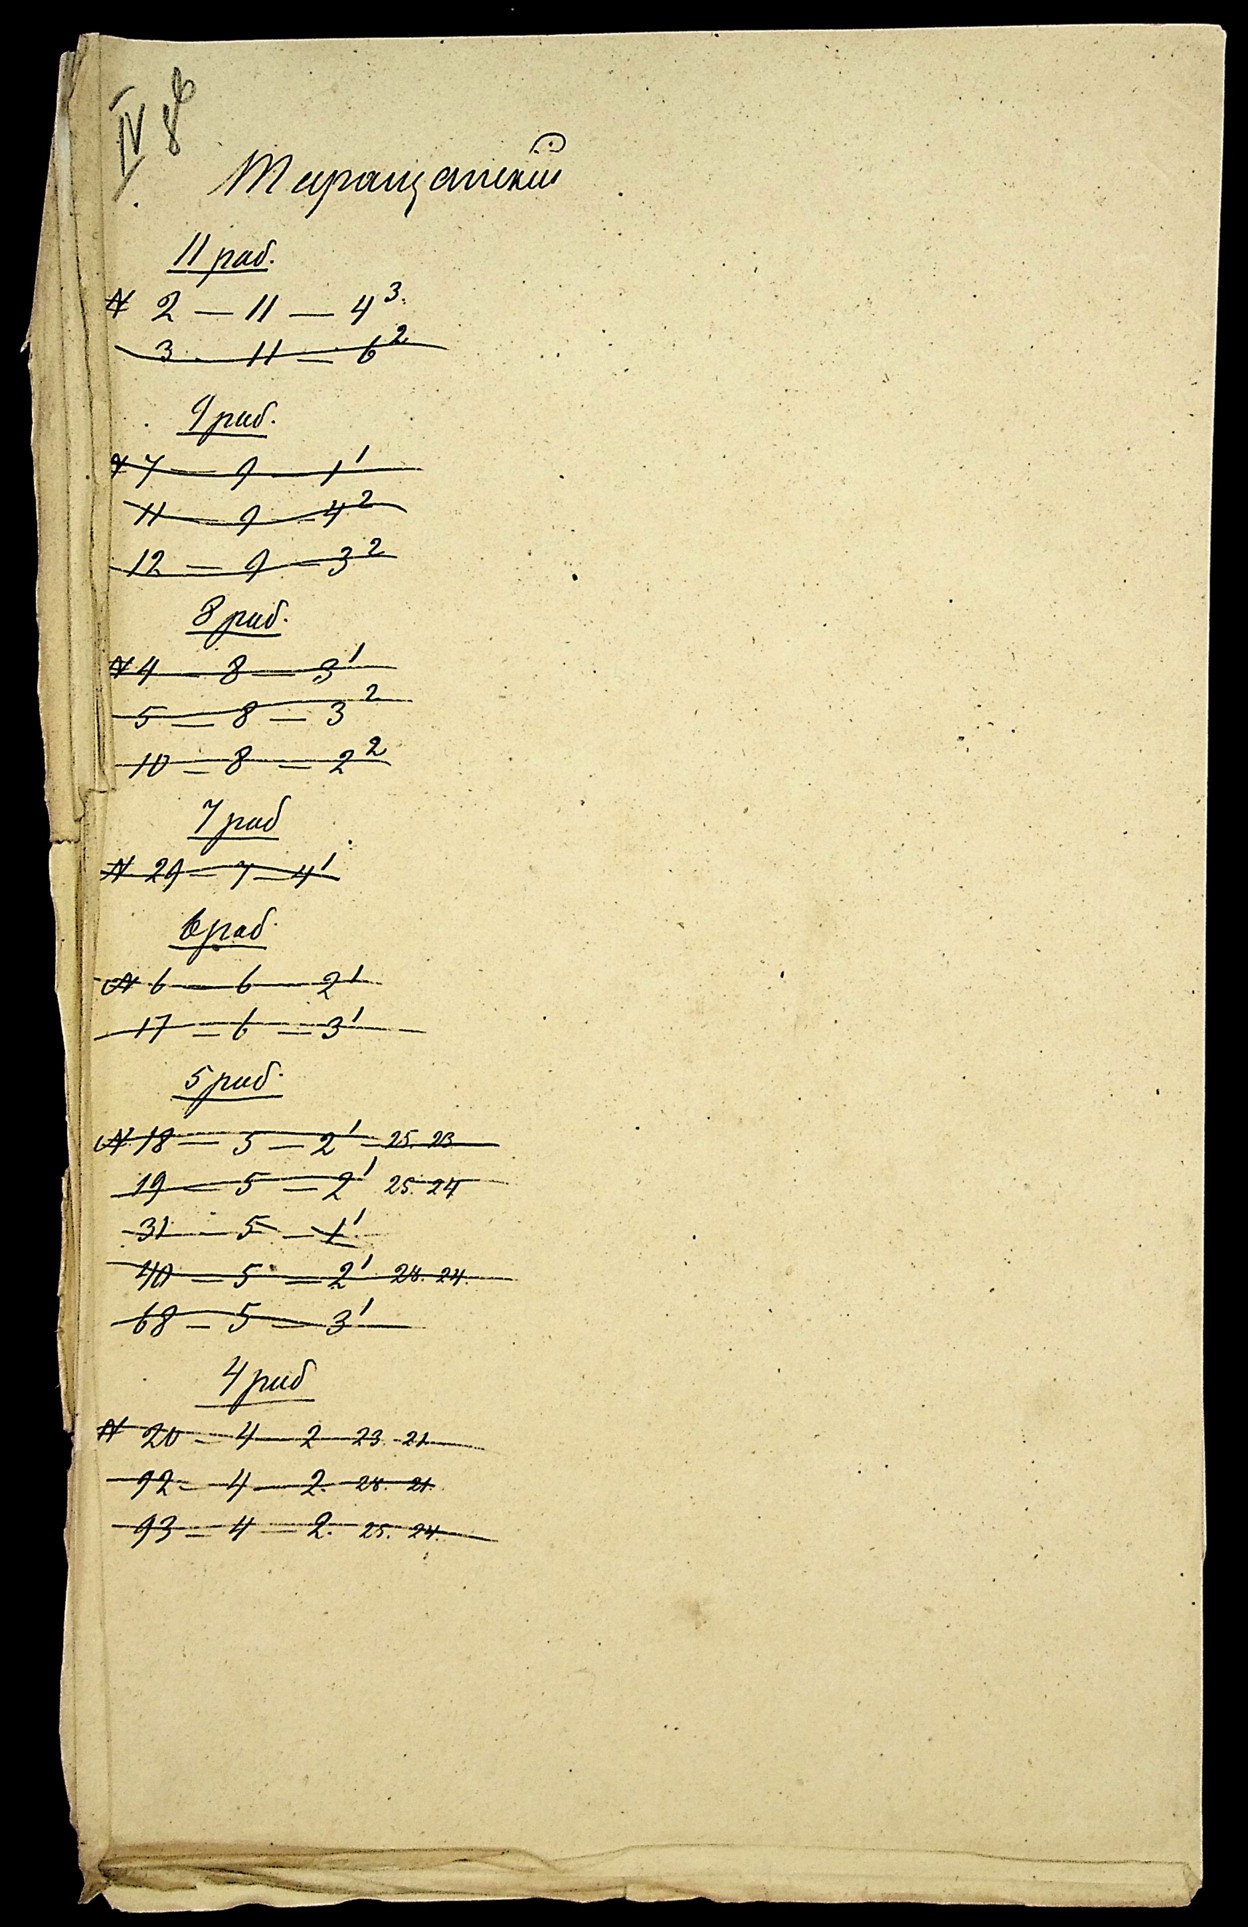 IV 8
Таращанский
11 раб.
№ 2 — 11 — 4³
3 — 11 — 6²
9 раб.
№ 7 — 9 — 1¹
11 — 9 — 4²
12 — 9 — 3²
8 раб.
№ 4 — 8 — 3¹
5 — 8 — 3²
10 — 8 — 2²
7 раб
№ 29 — 7 — 4¹
6 раб.
№ 6 — 6 — 2¹
17 — 6 — 3¹
5 раб.
№ 18 — 5 — 2¹ — 25. 23
19 — 5 — 2¹ 25. 24
31 — 5 — 1¹
40 — 5 — 2¹ 28. 24.
68 — 5 — 3¹
4 раб
№ 20 — 4 — 2 23. 21.
92 — 4 — 2. 28. 21.
93 — 4 — 2. 25. 24.